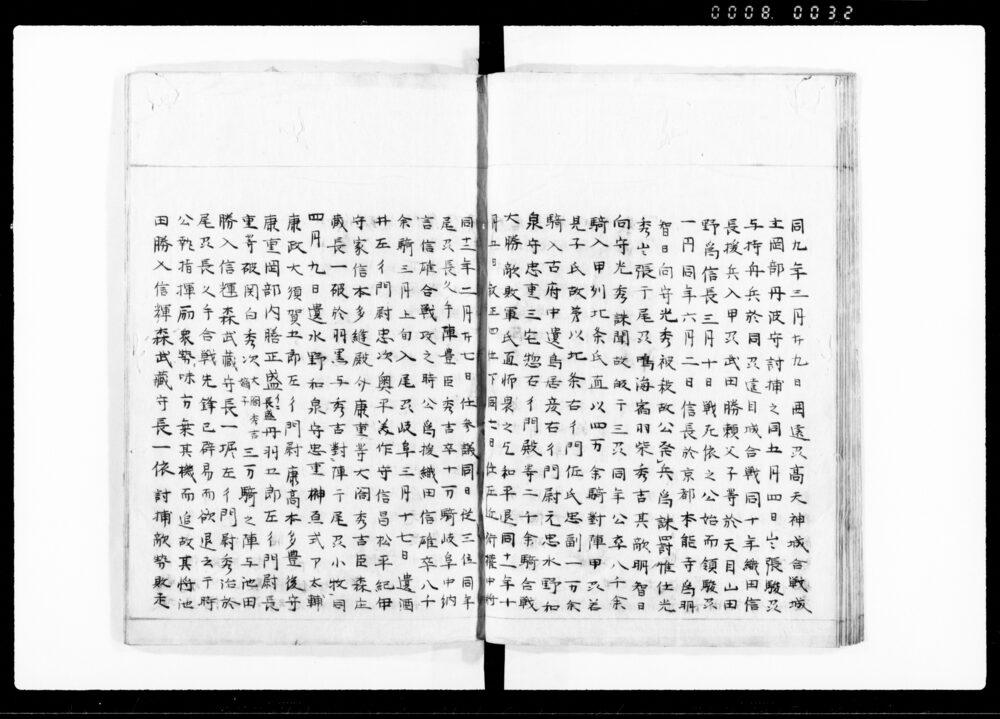 0008 0032
同九年三月廿九日囲遠刕高天神城合戦城
主岡部丹波守討捕之同五月四日出張駿刕
与持舟兵於同刕遠目城合戦同十年織田信
長援兵入甲刕武田勝頼父子等於天目山田
野為信長三月十日戦死依之公始而領駿刕
一円同年六月二日信長於京都本能寺為明
智日向守光秀被殺故公発兵為誅罰惟任光
秀出張于尾刕鳴海宿羽柴秀吉其敵明智日
向守光秀誅聞故皈于三刕同年公卒八千余
騎入甲州北条氏直以四万余騎對陣甲刕若
見子氏故等以北条右衛門佐氏忠副一万余
騎入古府中遣鳥居彦右衛門尉元忠水野和
泉守忠重三宅惣右衛門殿等二千余騎合戦
大勝敵敗軍氏直怖畏之乞和平退同十一年十
月五日叙正四位下同七日任左近衛権中将
同十二年二月廿七日任参議同日従三位同年
尾刕長久手陣豊臣秀吉卒十万騎岐阜中納
言信雄合戦攻之時公為援織田信雄卒八千
余騎三月上旬入尾刕岐阜三月十七日遣酒
井左衛門尉忠次奥平美作守信昌松平紀伊
守家信本多縫殿介康重等大閤秀吉臣森庄
蔵長一破於羽黒与秀吉對陣于尾刕小牧同
四月九日遣水野和泉守忠重榊原式ア太輔
康政大須賀五郎左衛門尉康高本多豊後守
康重岡部内膳正盛長盛丹羽五郎左衛門尉長
重等破関白秀次大閤秀吉猶子三万騎之陣与池田
勝入信輝森武蔵守長一堀左衛門尉秀治於
尾刕長久手合戦先鋒已辟易而欲退去于時
公執指揮扇衆勢味方乗其機而追故其将池
田勝入信輝森武蔵守長一依討捕敵勢敗走